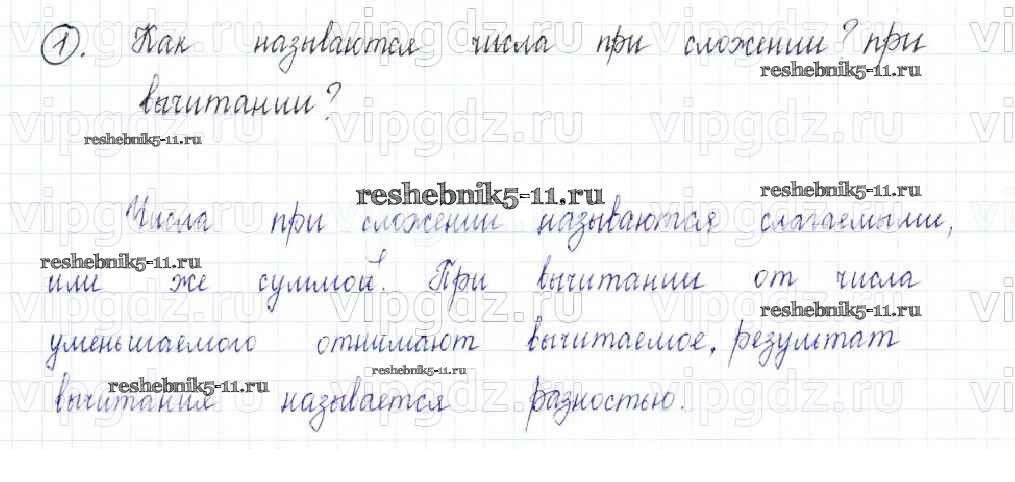 1. Как называются числа при сложении? при
reshebnik5-11.ru
вычитании?
vipgdz.ru vipgdz.ru vipgdz.ru vi
reshebnik5-11.ru
reshebnik5-11.ru
reshebnik5-11.ru
Числа при сложении называются слагаемыми,
reshebnik5-11.ru
или же суммой. При вычитании от числа
reshebnik5-11.ru
уменьшаемого отнимают вычитаемое, результат
reshebnik5-11.ru
reshebnik5-11.ru
вычитания называется разностью.